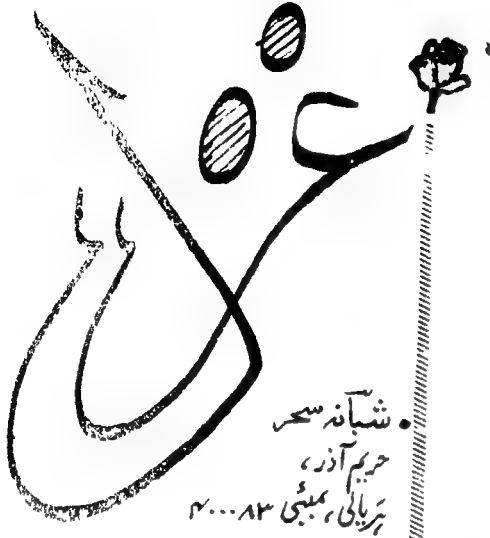 غزل
شبانہ سحر
حریم آذر،
ہریالی، بمبئی ۴۰۰۰۸۳